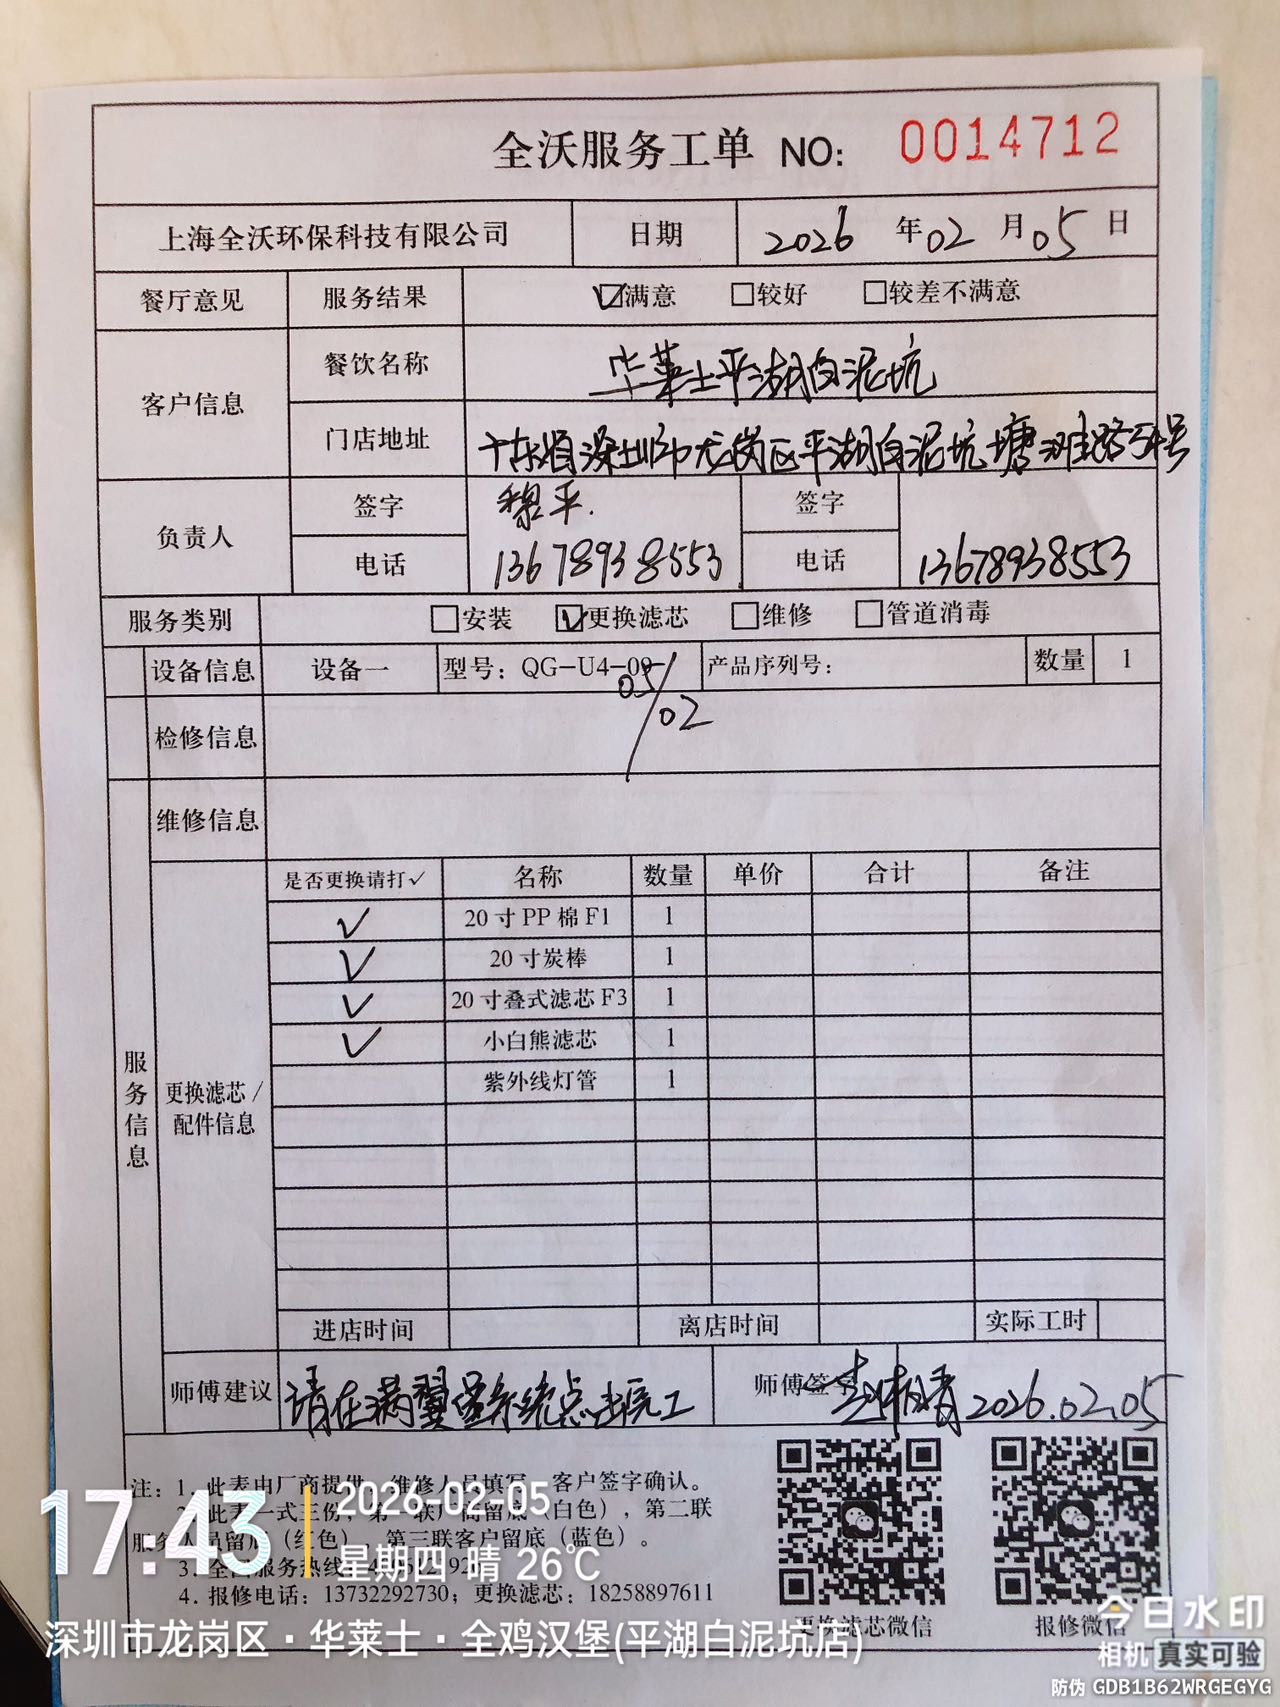 全沃服务工单 NO: 0014712
上海全沃环保科技有限公司 日期 2026 年 02 月 05 日
餐厅意见 服务结果 ☑满意 □较好 □较差不满意
客户信息 餐饮名称 华莱士平湖白泥坑
门店地址 广东省深圳市龙岗区平湖白泥坑塘 路54号
负责人 签字 黎平. 签字
电话 13678938553 电话 13678938553
服务类别 □安装 ☑更换滤芯 □维修 □管道消毒
设备信息 设备一 型号: QG-U4-0 产品序列号: 数量 1
05/02
检修信息
维修信息
服务信息
更换滤芯/配件信息
是否更换请打✓ 名称 数量 单价 合计 备注
✓ 20寸PP棉F1 1
✓ 20寸炭棒 1
✓ 20寸叠式滤芯F3 1
✓ 小白熊滤芯 1
紫外线灯管 1
进店时间 离店时间 实际工时
师傅建议 请在满 系统点击完工 师傅签字 2026.02.05
注: 1. 此表由厂商提供, 维修人员填写, 客户签字确认。
此表一式三份, 第一联厂商留底(白色), 第二联
服务人员留底(红色), 第三联客户留底(蓝色)。
3. 全 服务热线
4. 报修电话: 13732292730; 更换滤芯: 18258897611
更换滤芯微信 报修微信
17:43 2026-02-05
星期四 晴 26℃
深圳市龙岗区·华莱士·全鸡汉堡(平湖白泥坑店)
今日水印
相机 真实可验
防伪 GDB1B62WRGEGYG